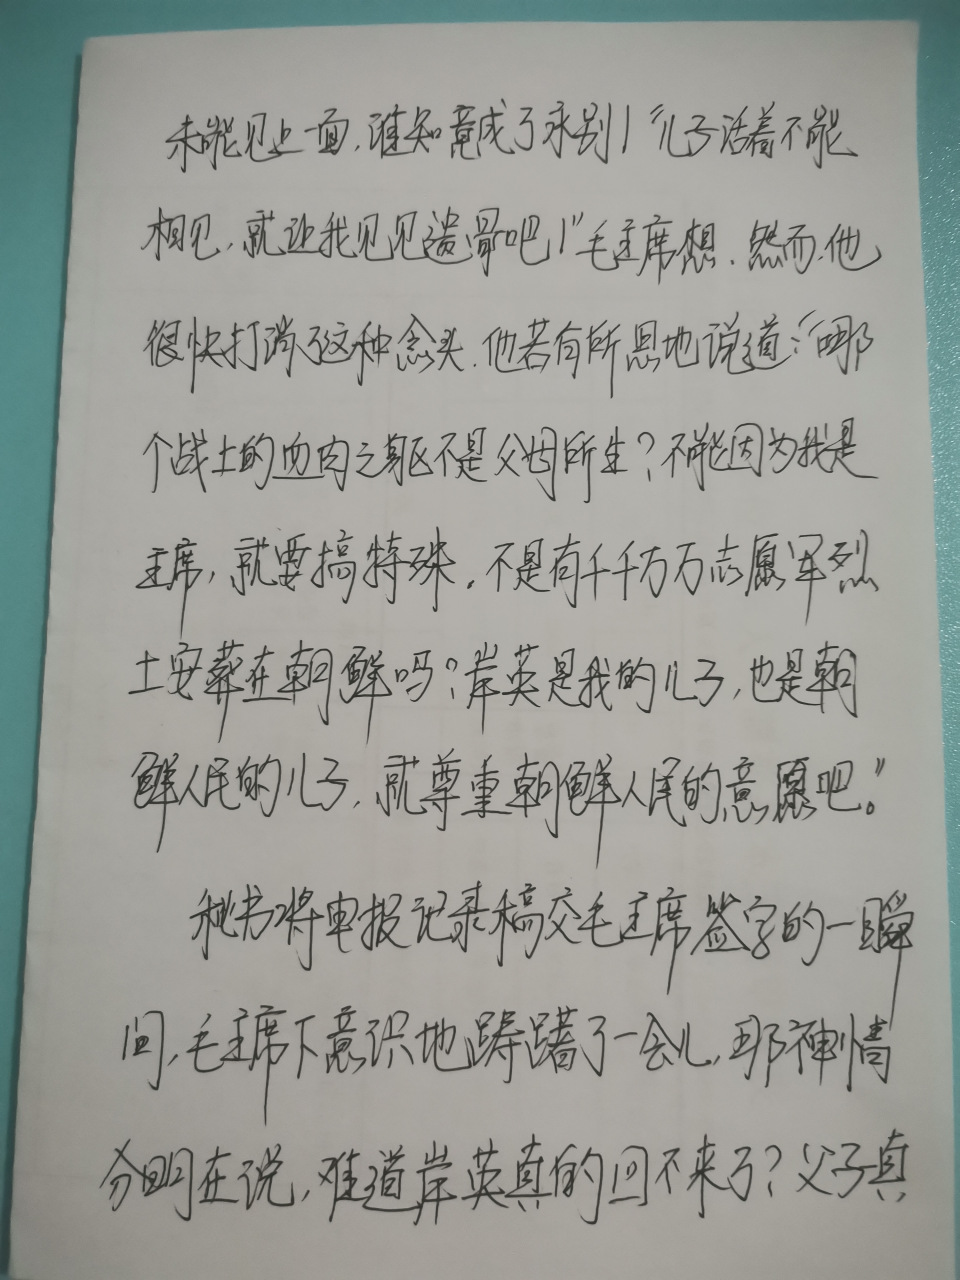 未能见上一面，谁知竟成了永别！“儿子活着不能
相见，就让我见见遗骨吧！”毛主席想．然而，他
很快打消了这种念头．他若有所思地说道：“哪
个战士的血肉之躯不是父母所生？不能因为我是
主席，就要搞特殊．不是有千千万万志愿军烈
士安葬在朝鲜吗？岸英是我的儿子，也是朝
鲜人民的儿子，就尊重朝鲜人民的意愿吧。”
秘书将电报记录稿交毛主席签字的一瞬
间，毛主席下意识地踌躇了一会儿，那神情
分明在说，难道岸英真的回不来了？父子真